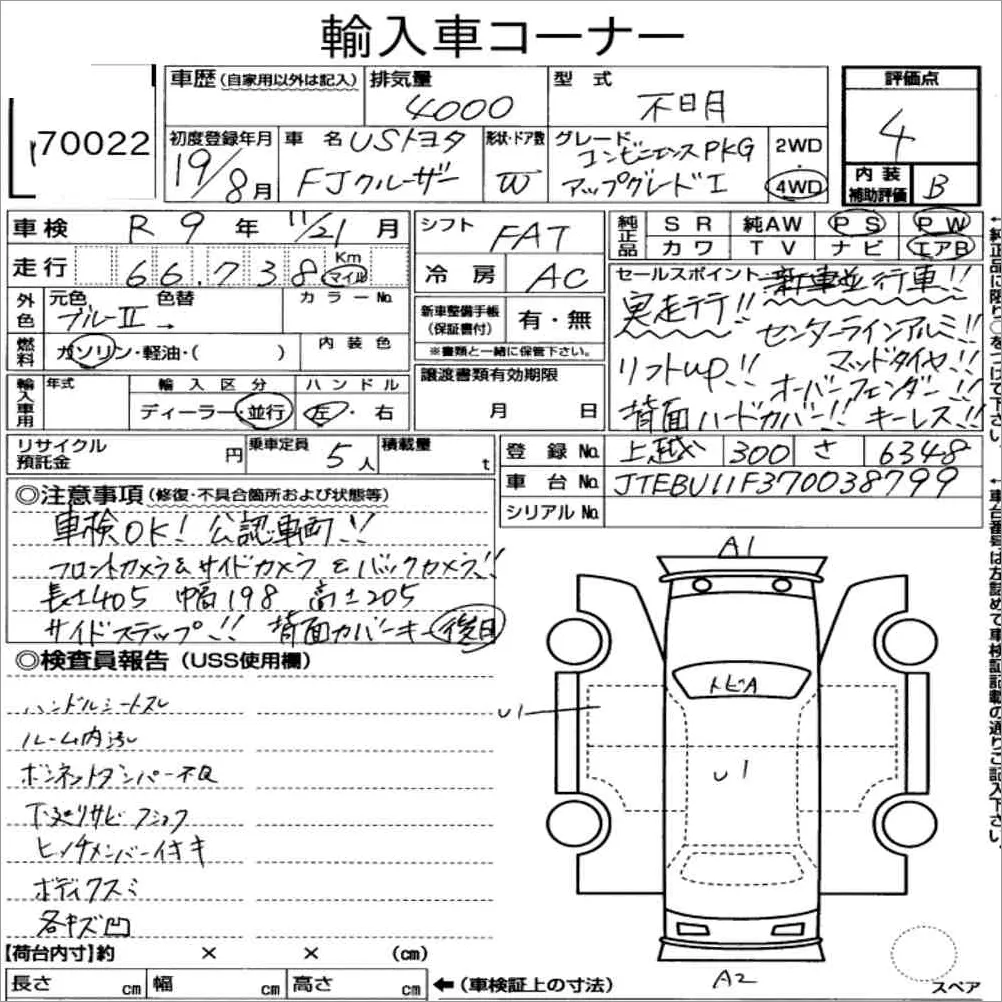 輸入車コーナー
70022
車歴(自家用以外は記入)
排気量
4000
型式
不日月
評価点
4
初度登録年月
19/8月
車名
USトヨタ
FJクルーザー
形状・ドア数
W
グレード
コンビニエンスPKG
アップグレードI
2WD
4WD
内装
補助評価
B
車検 R 9年 11/21月
シフト
FAT
純正品
SR 純AW PS PW
カワ TV ナビ エアB
走行 66,738 Km マイル
冷房 AC
セールスポイント 新車並行車!!
実走行!!
センターラインアルミ!!
リフトup!! マッドタイヤ!!
オーバーフェンダー!!
背面ハードカバー!! キーレス!!
外色
元色 色替 カラーNo.
ブルーII →
新車整備手帳
(保証書付)
有・無
※書類と一緒に保管下さい。
燃料
ガソリン・軽油・( )
内装色
輸入車用
年式
輸入区分
ディーラー・並行
ハンドル
左・右
譲渡書類有効期限
月 日
リサイクル
預託金
円
乗車定員
5人
積載量
t
登録No. 上越 300 さ 6348
車台No. JTEBU11F370038799
シリアルNo.
◎注意事項(修復・不具合箇所および状態等)
車検OK! 公認車両!!
フロントカメラ&サイドカメラ&バックカメラ!!
長さ405 幅198 高さ205
サイドステップ!! 背面カバーキー後日
◎検査員報告(USS使用欄)
ハンドルシートスレ
ルーム内汚レ
ボンネットダンパー不良
下廻りサビ
ボディクスミ
各キズ凹
A1
トビA
U1
U1
A2
スペア
【荷台内寸】約 × × (cm)
長さ cm 幅 cm 高さ cm ←(車検証上の寸法)
←純正品に限り○をつけて下さい。
←車台番号は左詰めで車検証記載の通りご記入下さい。